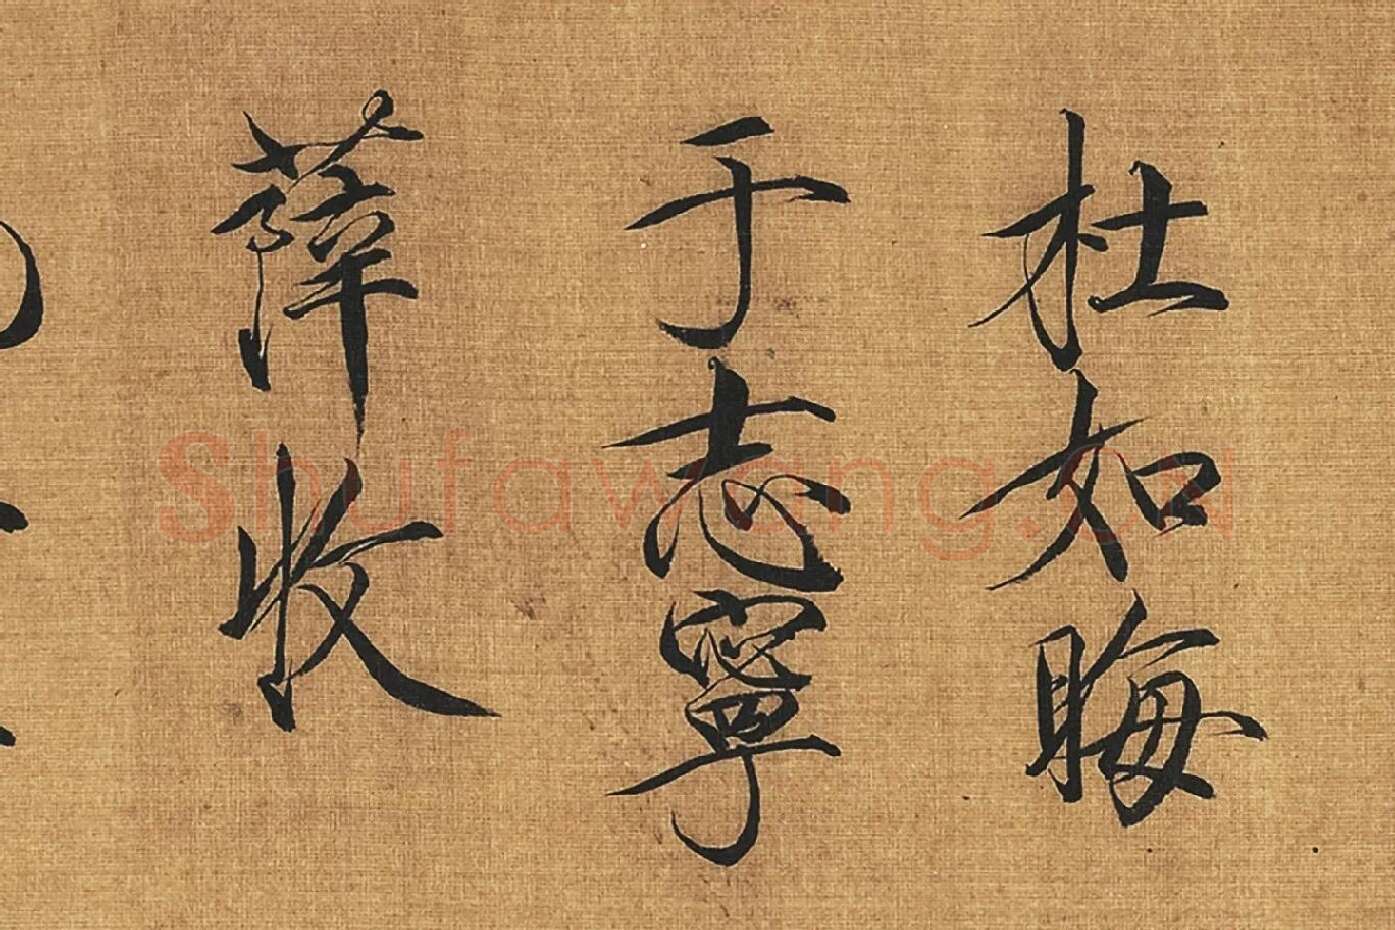 杜如晦
于志寧
薛收
Shufawang.cn